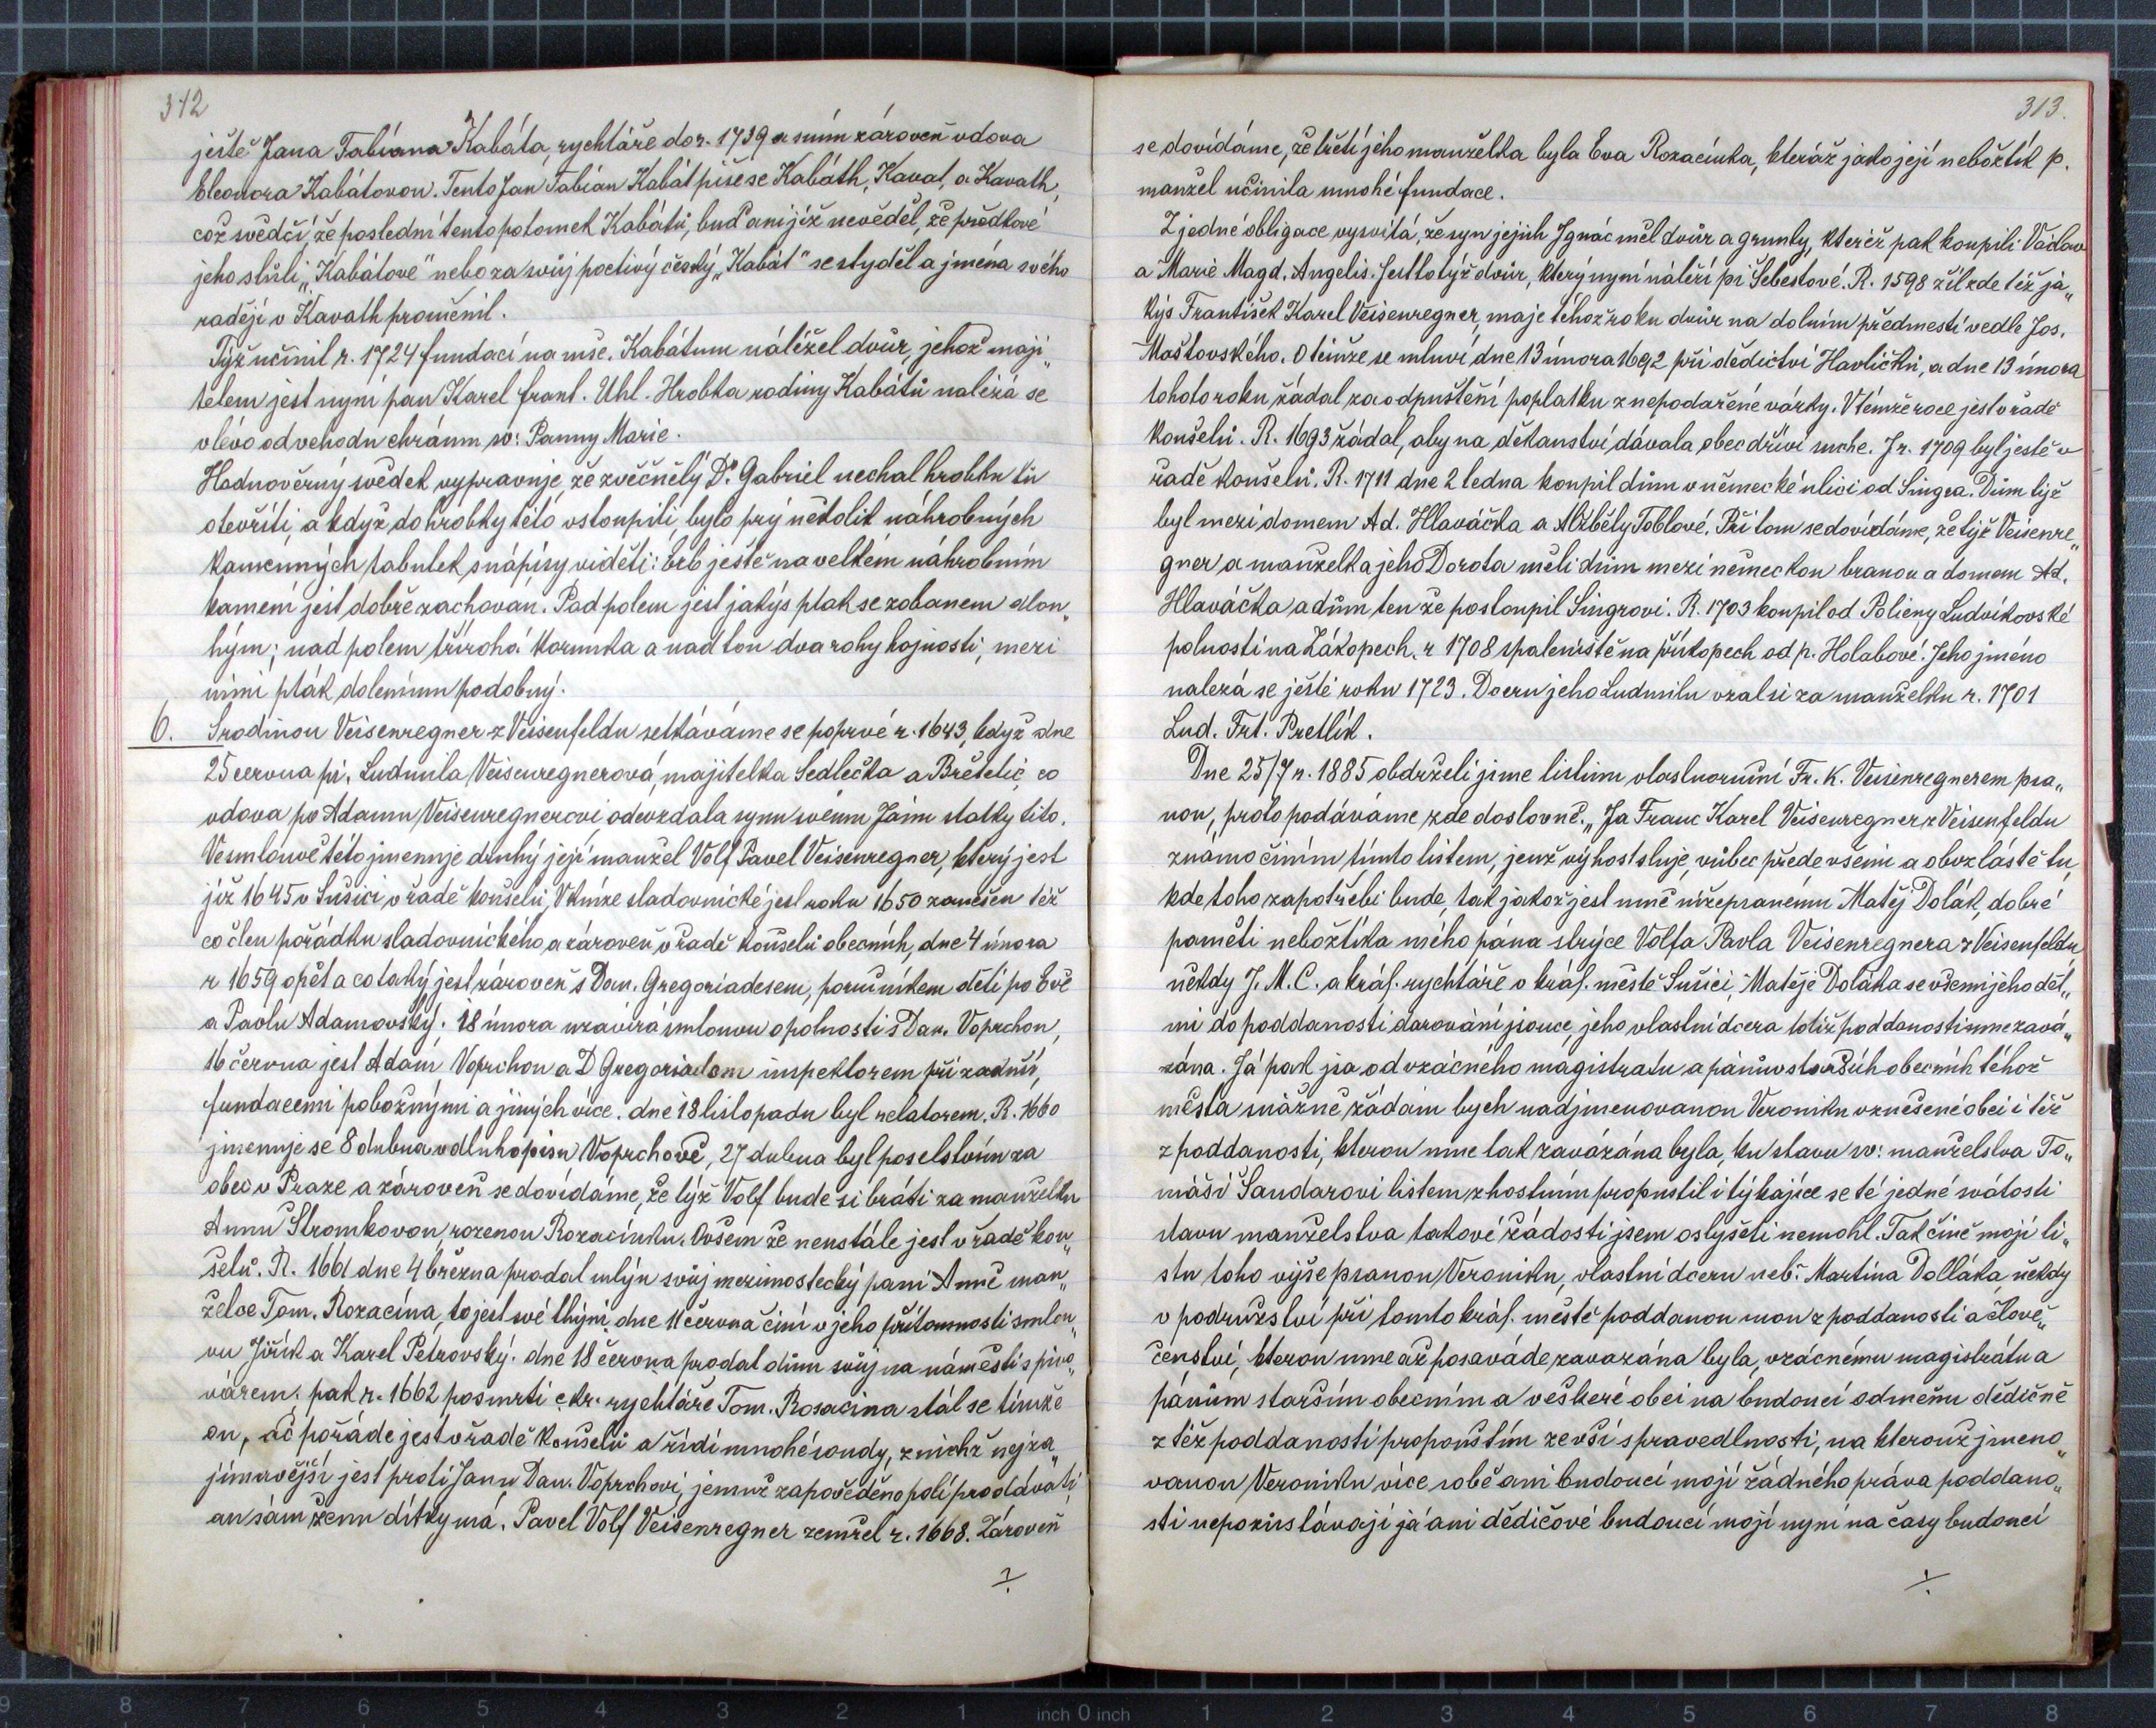 312
ještě Jana Fabiána Kabáta, rychtáře do r. 1739 a s ním zároveň vdova
Eleonora Kabátovou. Tento Jan Fabián Kabát píše se Kabáth, Kavat, a Kavath,
což svědčí, že poslední tento potomek Kabátů, buď ani již nevěděl, že předkové
jeho slůli „Kabátové" nebo za svůj poctivý český „Kabát" se styděl a jména svého
raději v Kavath proměnil.
Týž učinil r. 1724 fundaci na mše. Kabátum náležel dvůr, jehož maji„
telem jest nyní pan Karel frant. Uhl. Hrobka rodiny Kabátů nalézá se
vlévo od vchodu chrámu sv: Panny Marie.
Hodnověrný svědek vypravuje, že zvěčnělý Dr. Gabriel nechal hrobku tu
otevříti, a když do hrobky této vstoupili, bylo prý několik náhrobných
kamenných tabulek s nápisy viděti: Erb ještě na velkém náhrobním
kameni jest dobře zachován. Pod polem jest jakýs pták se zobanem dlou„
hým; nad polem třírohá korunka a nad tou dva rohy hojnosti, mezi
nimi pták dolenímu podobný.
6. S rodinou Veisenregner z Veisenfeldu setkáváme se poprvé r. 1643, když dne
25 cervna pí. Ludmila Veisenregnerová, majitelka Sedlečka a Brčtelic, co
vdova po Adamu Veisenregnerovi odevzdala synu svému Jánu statky tito.
Ve smlouvě této jmenuje druhý její manžel Volf Pavel Veisenregner, který jest
již 1645 v Sušici v řadě konšelů, V knize sladovnické jest roku 1650 zanešen též
co člen pořádku sladovnického a zároveň v řadě konšelů obecních, dne 4 února
r 1659 opět a co taký jest zároveň s Dan. Gregoriadesem, poručníkem dětí po Evě
a Pavlu Adamovský. 18 února uzavírá smlouvu o polnosti s Dan. Voprchou,
16 června jest Adam Voprchou a D Gregoriadom inspektorem při záduší,
fundacemi pobožnými a jiných více. dne 18 listopadu byl relatorem. R. 1660
jmenuje se 8 dubna v dluhopisu Voprchově, 27 dubna byl poselstvím za
obec v Praze a zároveň se dovídáme, že týž Volf bude si bráti za manželku
Annu Stromkovou, rozenou Rozacínku. Ovšem že neustále jest v řadě kon„
šelů. R. 1661 dne 4 března prodal mlýn svůj mezimostecký paní Anně man„
želce Tom. Rozacína, to jest své tchýni, dne 11 června činí v jeho přítomnosti smlou„
vu Jiřík a Karel Petrovský. dne 18 června prodal dům svůj na náměstí s pivo„
várem. pak r. 1662 po smrti c. kr. rychtáře Tom. Rosacina stál se tímže
on, ač pořáde jest v řadě konšelů a řídí mnohé soudy, z nichž nejza„
jímavější jest proti Janu Dan. Voprchovi, jemuž zapověděno polí prodávati,
an sám ženu dítky má. Pavel Volf Veisenregner zemřel r. 1668. Zároveň
313.
se dovídáme, že třetí jeho manželka byla Eva Rozacínka, kteráž jako její nebožtík p.
manžel učinila mnohé fundace.
Z jedné obligace vysvítá, že syn jejich Ignác měl dvůr a grunty, kteréž pak koupili Václav
a Marie Magd. Angelis. Jest to týž dvůr, který nyní náleží pí Šebestové. R. 1598 žil zde též já„
kýs František Karel Veisenregner, maje téhož roku dvůr na dolním předmestí vedle Jos.
Moštovského. O témže se mluví dne 13 února 1692 při dědictví Havlíčků, a dne 13 února
tohoto roku žádal za odpuštění poplatku z nepodařené várky. V témže roce jest v řadě
konšelů. R. 1693 žádal, aby na děkanství dávala obec dříví suche. I r. 1709 byl ještě v
řadě konšelů. R. 1711 dne 2 ledna koupil dům v německé ulici od Singra. Dům týž
byl mezi domem Ad. Hlaváčka a Alžběty Toblové. Při tom se dovídáme, že týž Veisenre„
gner a manželka jeho Dorota měli dům mezi německou branou a domem Ad.
Hlaváčka a dům ten že postoupil Singrovi. R. 1703 koupil od Polieny Ludvíkovské
polnosti na Zákopech, r 1708 spaleniště na příkopech od p. Holabové. Jeho jméno
nalezá se ještě roku 1723. Dceru jeho Ludmilu vzal si za manželku r. 1701
Lud. Frt. Pretlík.
Dne 25/7 r. 1885 obdrželi jsme listinu vlastnoruční Fr. K. Veisenregnerem psa„
nou, proto podáváme zde doslovně. „Ja Franc Karel Veisenregner z Veisenfeldu
známo činím tímto listem, jenž výhost sluje, vůbec přede všemi a obzláště tu,
kde toho zapotřebi bude, tak jakož jest mně níže psanému Matěj Dolák, dobré
paměti nebožtíka mého pána strýce Volfa Pavla Veisenregnera z Veisenfeldu,
někdy J. M. C. a král. rychtáře v král. městě Sušici, Matěje Doláka se všemi jeho dět„
mi do poddanosti darováni jsouce, jeho vlastní dcera totiž poddanosti mne zavá„
zána. Já pak jsa od vzácného magistratu a pánův starších obecních téhož
města snážně žádám bych nadjmenovanou Veroniku vznešené obci i též
z poddanosti, kterou mne tak zavázána byla, ku stavu sv: manželstva To„
máši Šandarovi listem zhostním propustil i týkajíce se té jedné svátosti
stavu manželstva takové žádosti jsem oslyšeti nemohl. Tak čině mojí li„
stu toho výše psanou Veroniku, vlastní dceru neb: Martina Dolláka, někdy
v podružství při tomto král. městě poddanou mou z poddanosti a člově„
čenství, kterou mne až posaváde zavazána byla, vzácnému magistrátu a
pánům starším obecním a veškeré obci na budoucí odměnu dědičně
z též poddanosti propouštím ze vší spravedlnosti, na kterouž jmeno„
vanou Veroniku více sobě ani budoucí mojí žádného práva poddano„
sti nepozůstávají já ani dědičové budoucí mojí nyní na časy budoucí